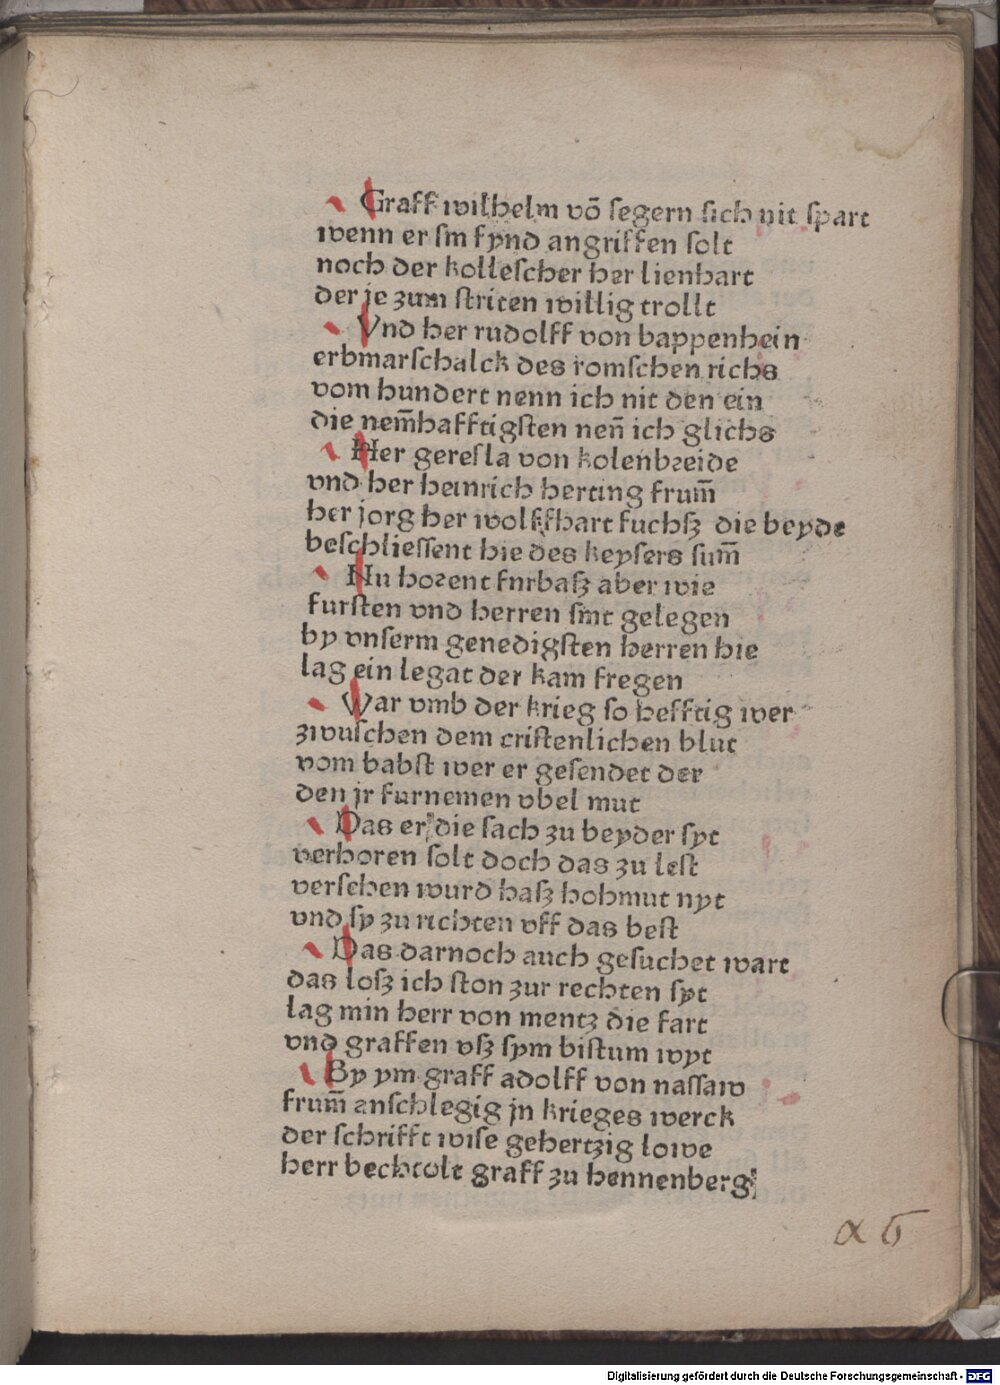 Graff wilhelm võ segern sich nit spart
wenn er sin fynd angriffen solt
noch der kollescher her lienhart
der je zum striten willig trollt
Vnd her rudolff von bappenhein
erbmarschalck des romschen richs
vom hundert nenn ich nit den ein
die nem̄hafftigsten nen̄ ich glichs
Her geresla von kolenbreide
vnd her heinrich herting frum̄
her jorg her wolffhart fuchsz die beyde
beschliessent hie des keysers sum̄
Nu horent furbasz aber wie
fursten vnd herren sint gelegen
by vnserm genedigsten herren hie
lag ein legat der kam fregen
War vmb der krieg so hefftig wer
zwuschen dem cristenlichen blut
vom babst wer er gesendet der
den jr furnemen vbel mut
Das er die sach zu beyder syt
verhoren solt doch das zu lest
versehen wurd hasz hohmut nyt
vnd sy zu richten vff das best
Das darnoch auch gesuchet wart
das losz ich ston zur rechten syt
lag min herr von mentz die fart
vnd graffen vsz sym bistum wyt
By ym graff adolff von nassaw
frum̄ anschlegig jn krieges werck
der schrifft wise gehertzig lowe
herr bechtolt graff zu hennenberg
a 6
Digitalisierung gefördert durch die Deutsche Forschungsgemeinschaft - DFG